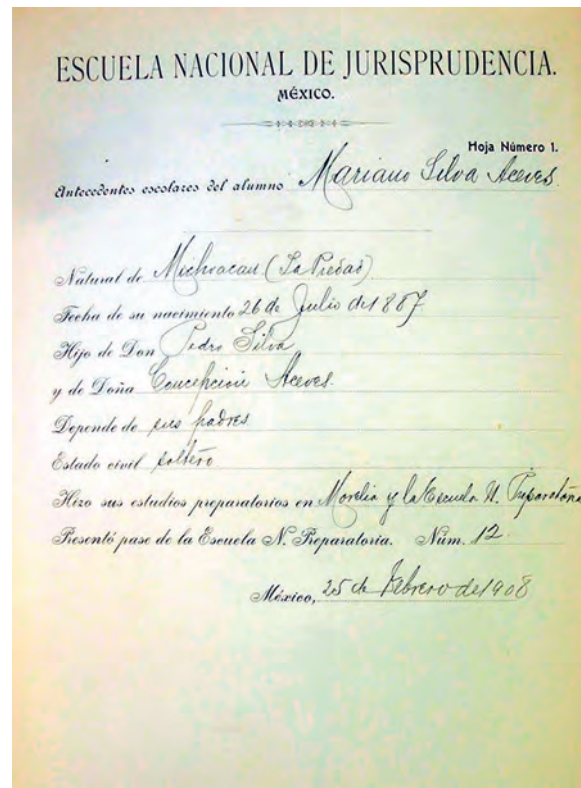 ESCUELA NACIONAL DE JURISPRUDENCIA.
MÉXICO.
Hoja Número 1.
Antecedentes escolares del alumno Mariano Silva Aceves
Natural de Michoacan (La Piedad)
Fecha de su nacimiento 26 de Julio del 1887.
Hijo de Don Pedro Silva
y de Doña Concepcion Aceves.
Depende de sus padres
Estado civil soltero
Hizo sus estudios preparatorios en Morelia y la Escuela N. Preparatoria
Presentó pase de la Escuela N. Preparatoria. Núm. 12.
México, 25 de Febrero del 1908